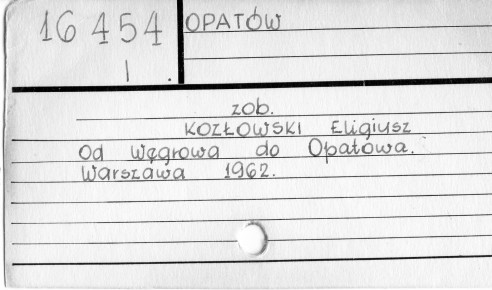 16 454 OPATÓW
I .
zob.
KOZŁOWSKI Eligiusz
Od Węgrowa do Opatowa.
Warszawa 1962.